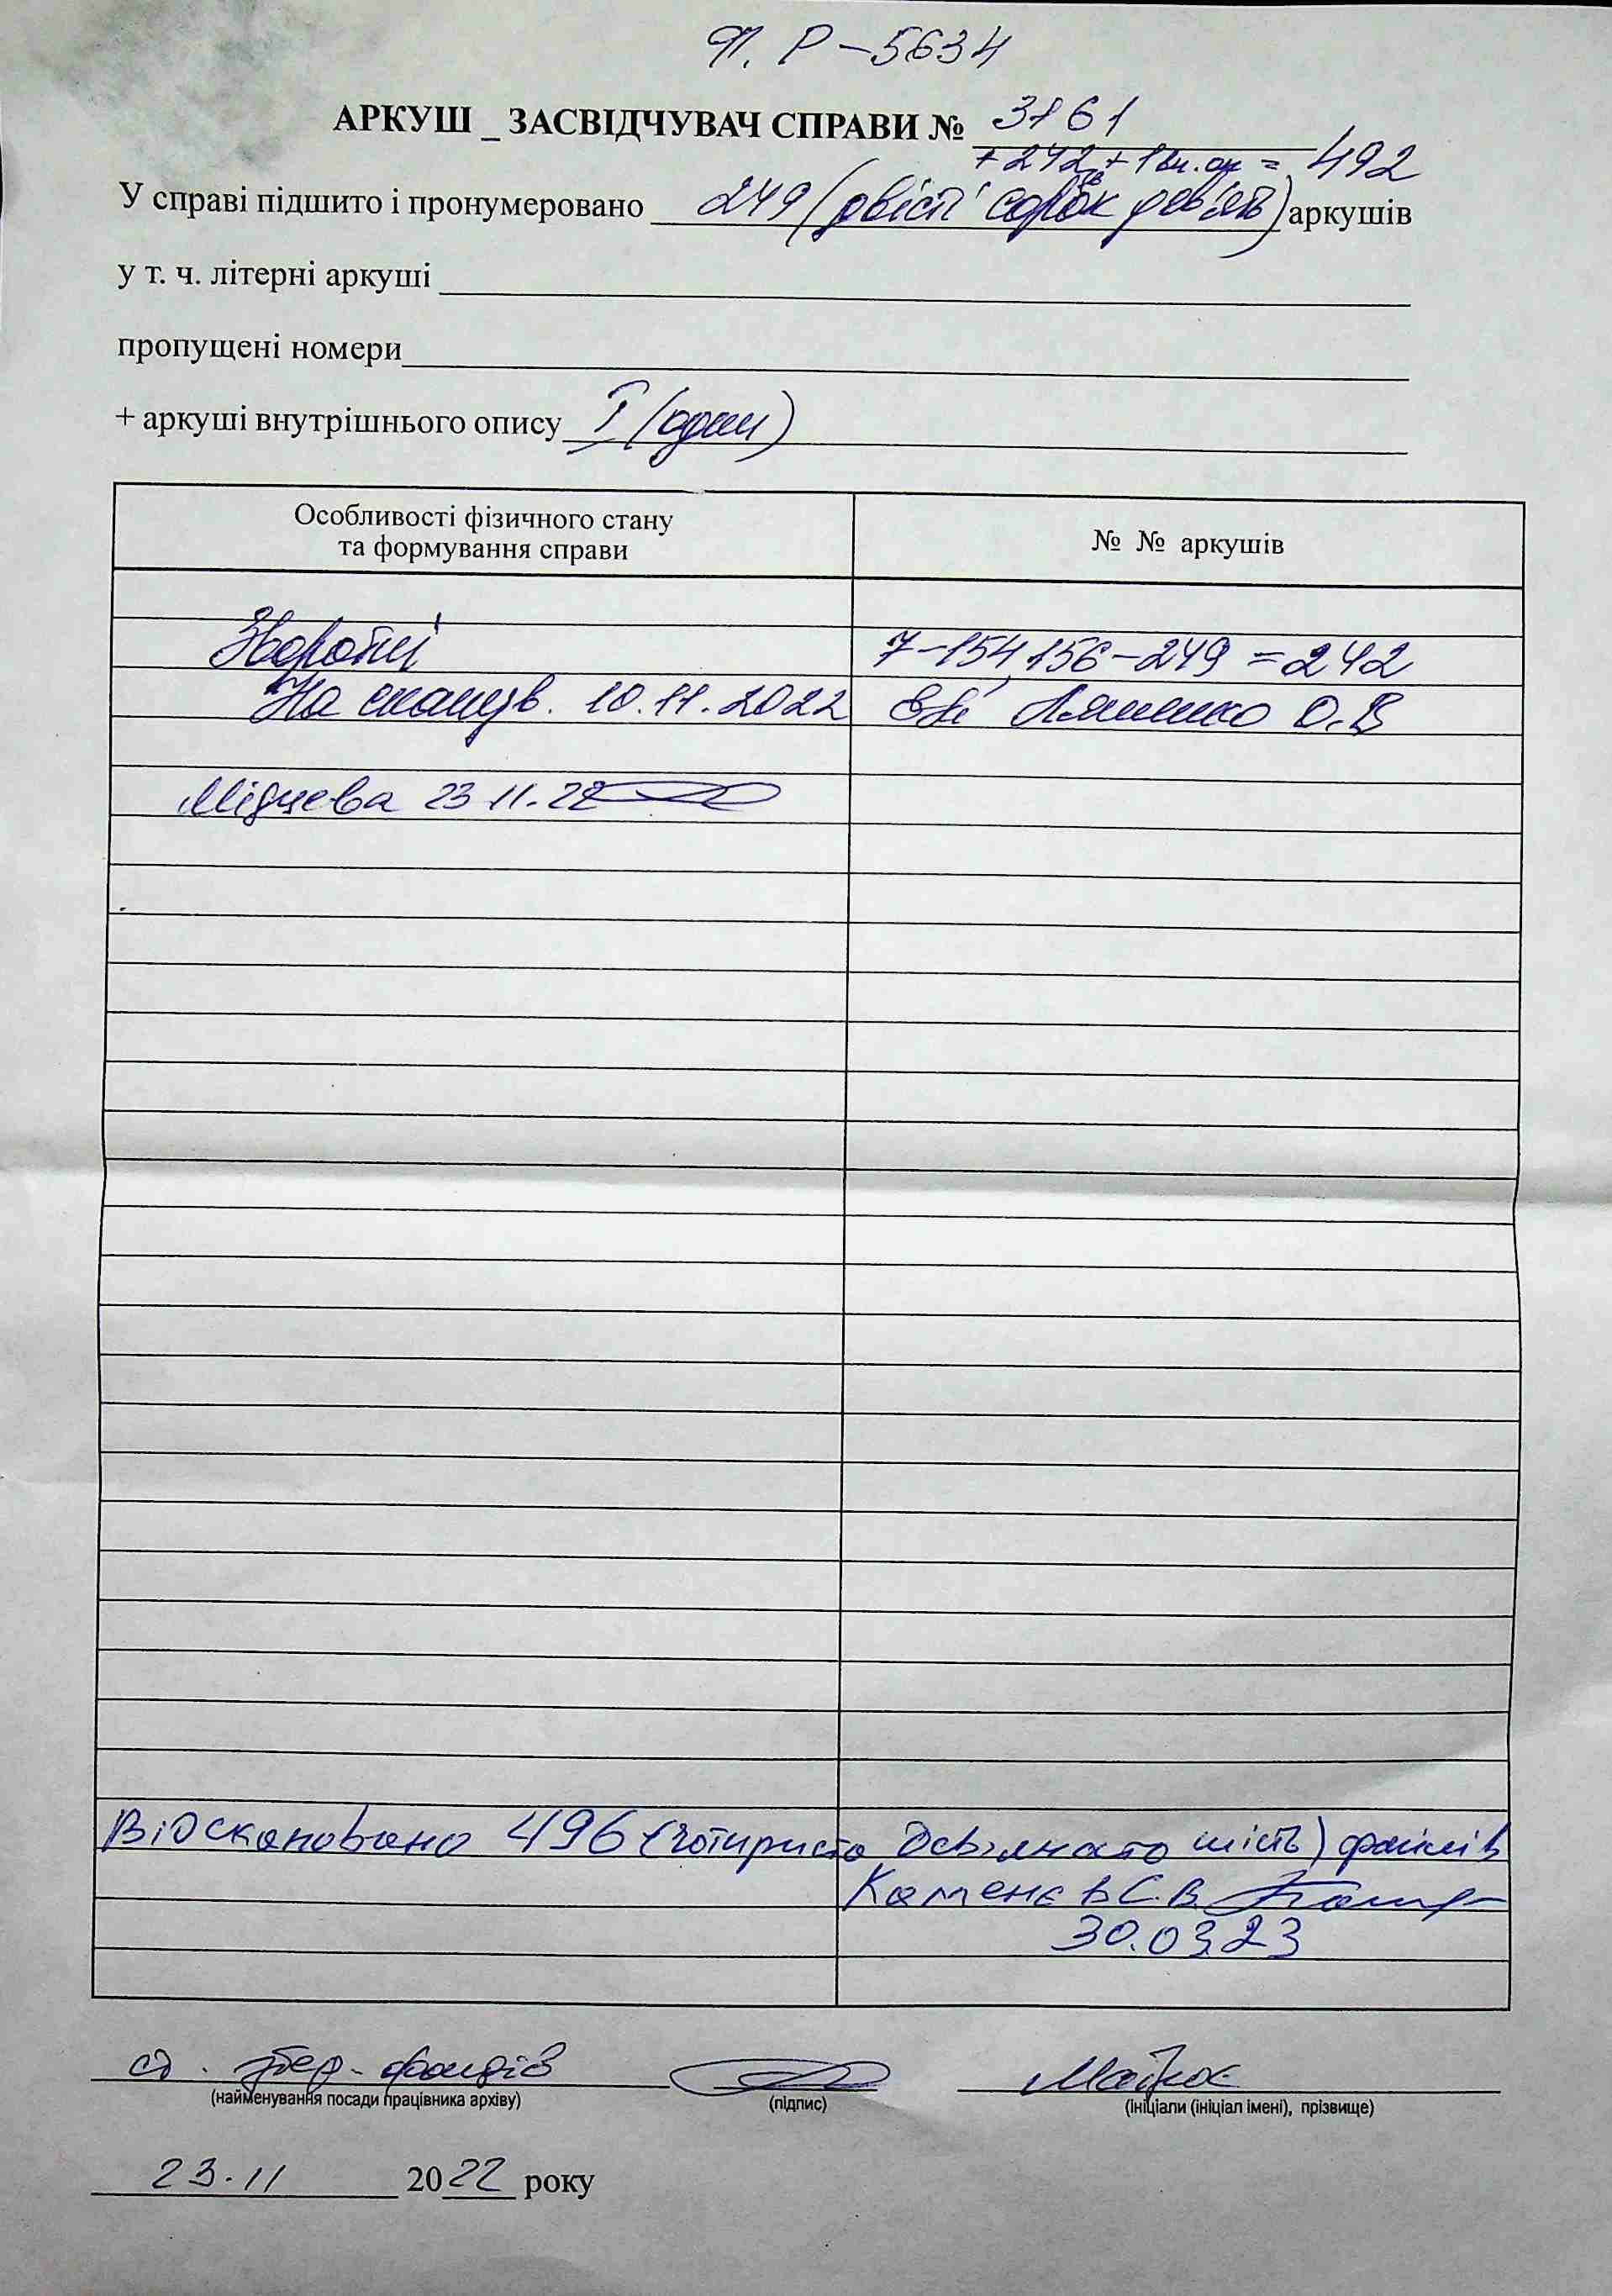 Ф. Р-5634
АРКУШ _ ЗАСВІДЧУВАЧ СПРАВИ № 3861
+ 242 зв + 1 вн. оп = 492
У справі підшито і пронумеровано 249 (двісті сорок дев'ять) аркушів
у т. ч. літерні аркуші
пропущені номери
+ аркуші внутрішнього опису 1 (один)
Особливості фізичного стану та формування справи
№ № аркушів
Зворотні 7-154, 156-249 = 242
На сканув. 10.11.2022 Ляшенко О.В
23 11. 22
Відскановано 496 (чотириста дев'яносто шість) файлів
Каменєв С.В.
30.03.23
ст. збер. фондів
(найменування посади працівника архіву) (підпис) (ініціали (ініціал імені), прізвище)
23.11 2022 року